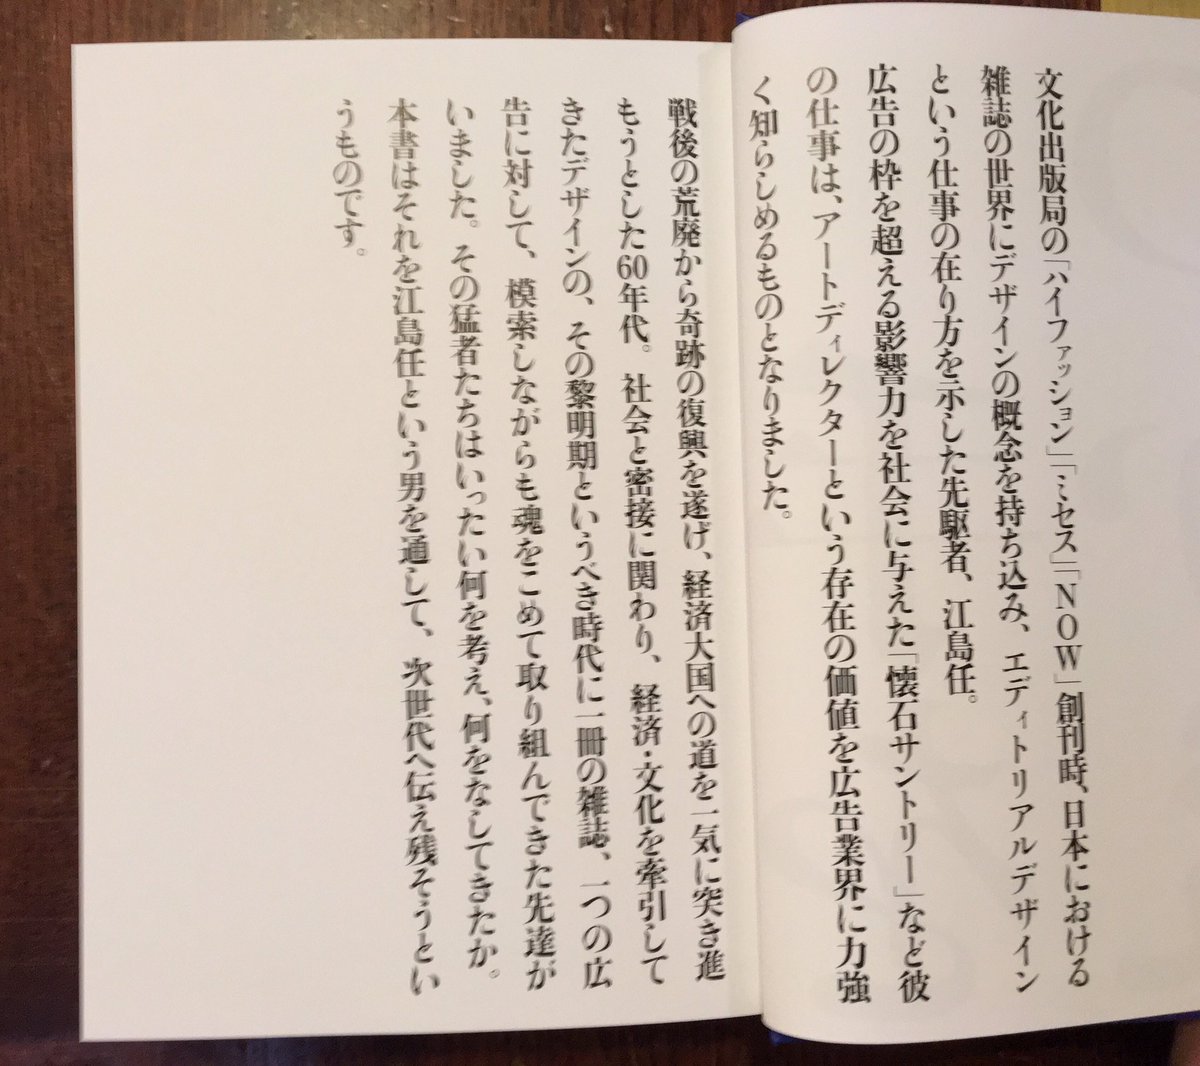 文化出版局の「ハイファッション」「ミセス」「NOW」創刊時、日本における
雑誌の世界にデザインの概念を持ち込み、エディトリアルデザイン
という仕事の在り方を示した先駆者、江島任。
広告の枠を超える影響力を社会に与えた「懐石サントリー」など彼
の仕事は、アートディレクターという存在の価値を広告業界に力強
く知らしめるものとなりました。
戦後の荒廃から奇跡の復興を遂げ、経済大国への道を一気に突き進
もうとした60年代。社会と密接に関わり、経済・文化を牽引して
きたデザインの、その黎明期というべき時代に一冊の雑誌、一つの広
告に対して、模索しながらも魂をこめて取り組んできた先達が
いました。その猛者たちはいったい何を考え、何をなしてきたか。
本書はそれを江島任という男を通して、次世代へ伝え残そうとい
うものです。